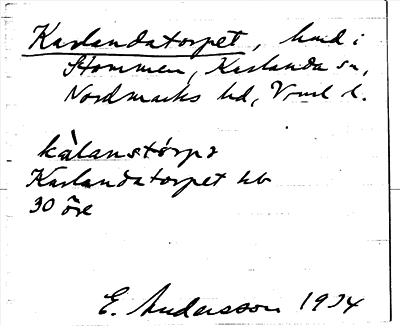 Karlandatorpet, hmd i
Stommen, Karlanda sn,
Nordmarks hd, Vrml l.
kàlanstórpə
Karlandatorpet hb
30 öre
E. Andersson 1934